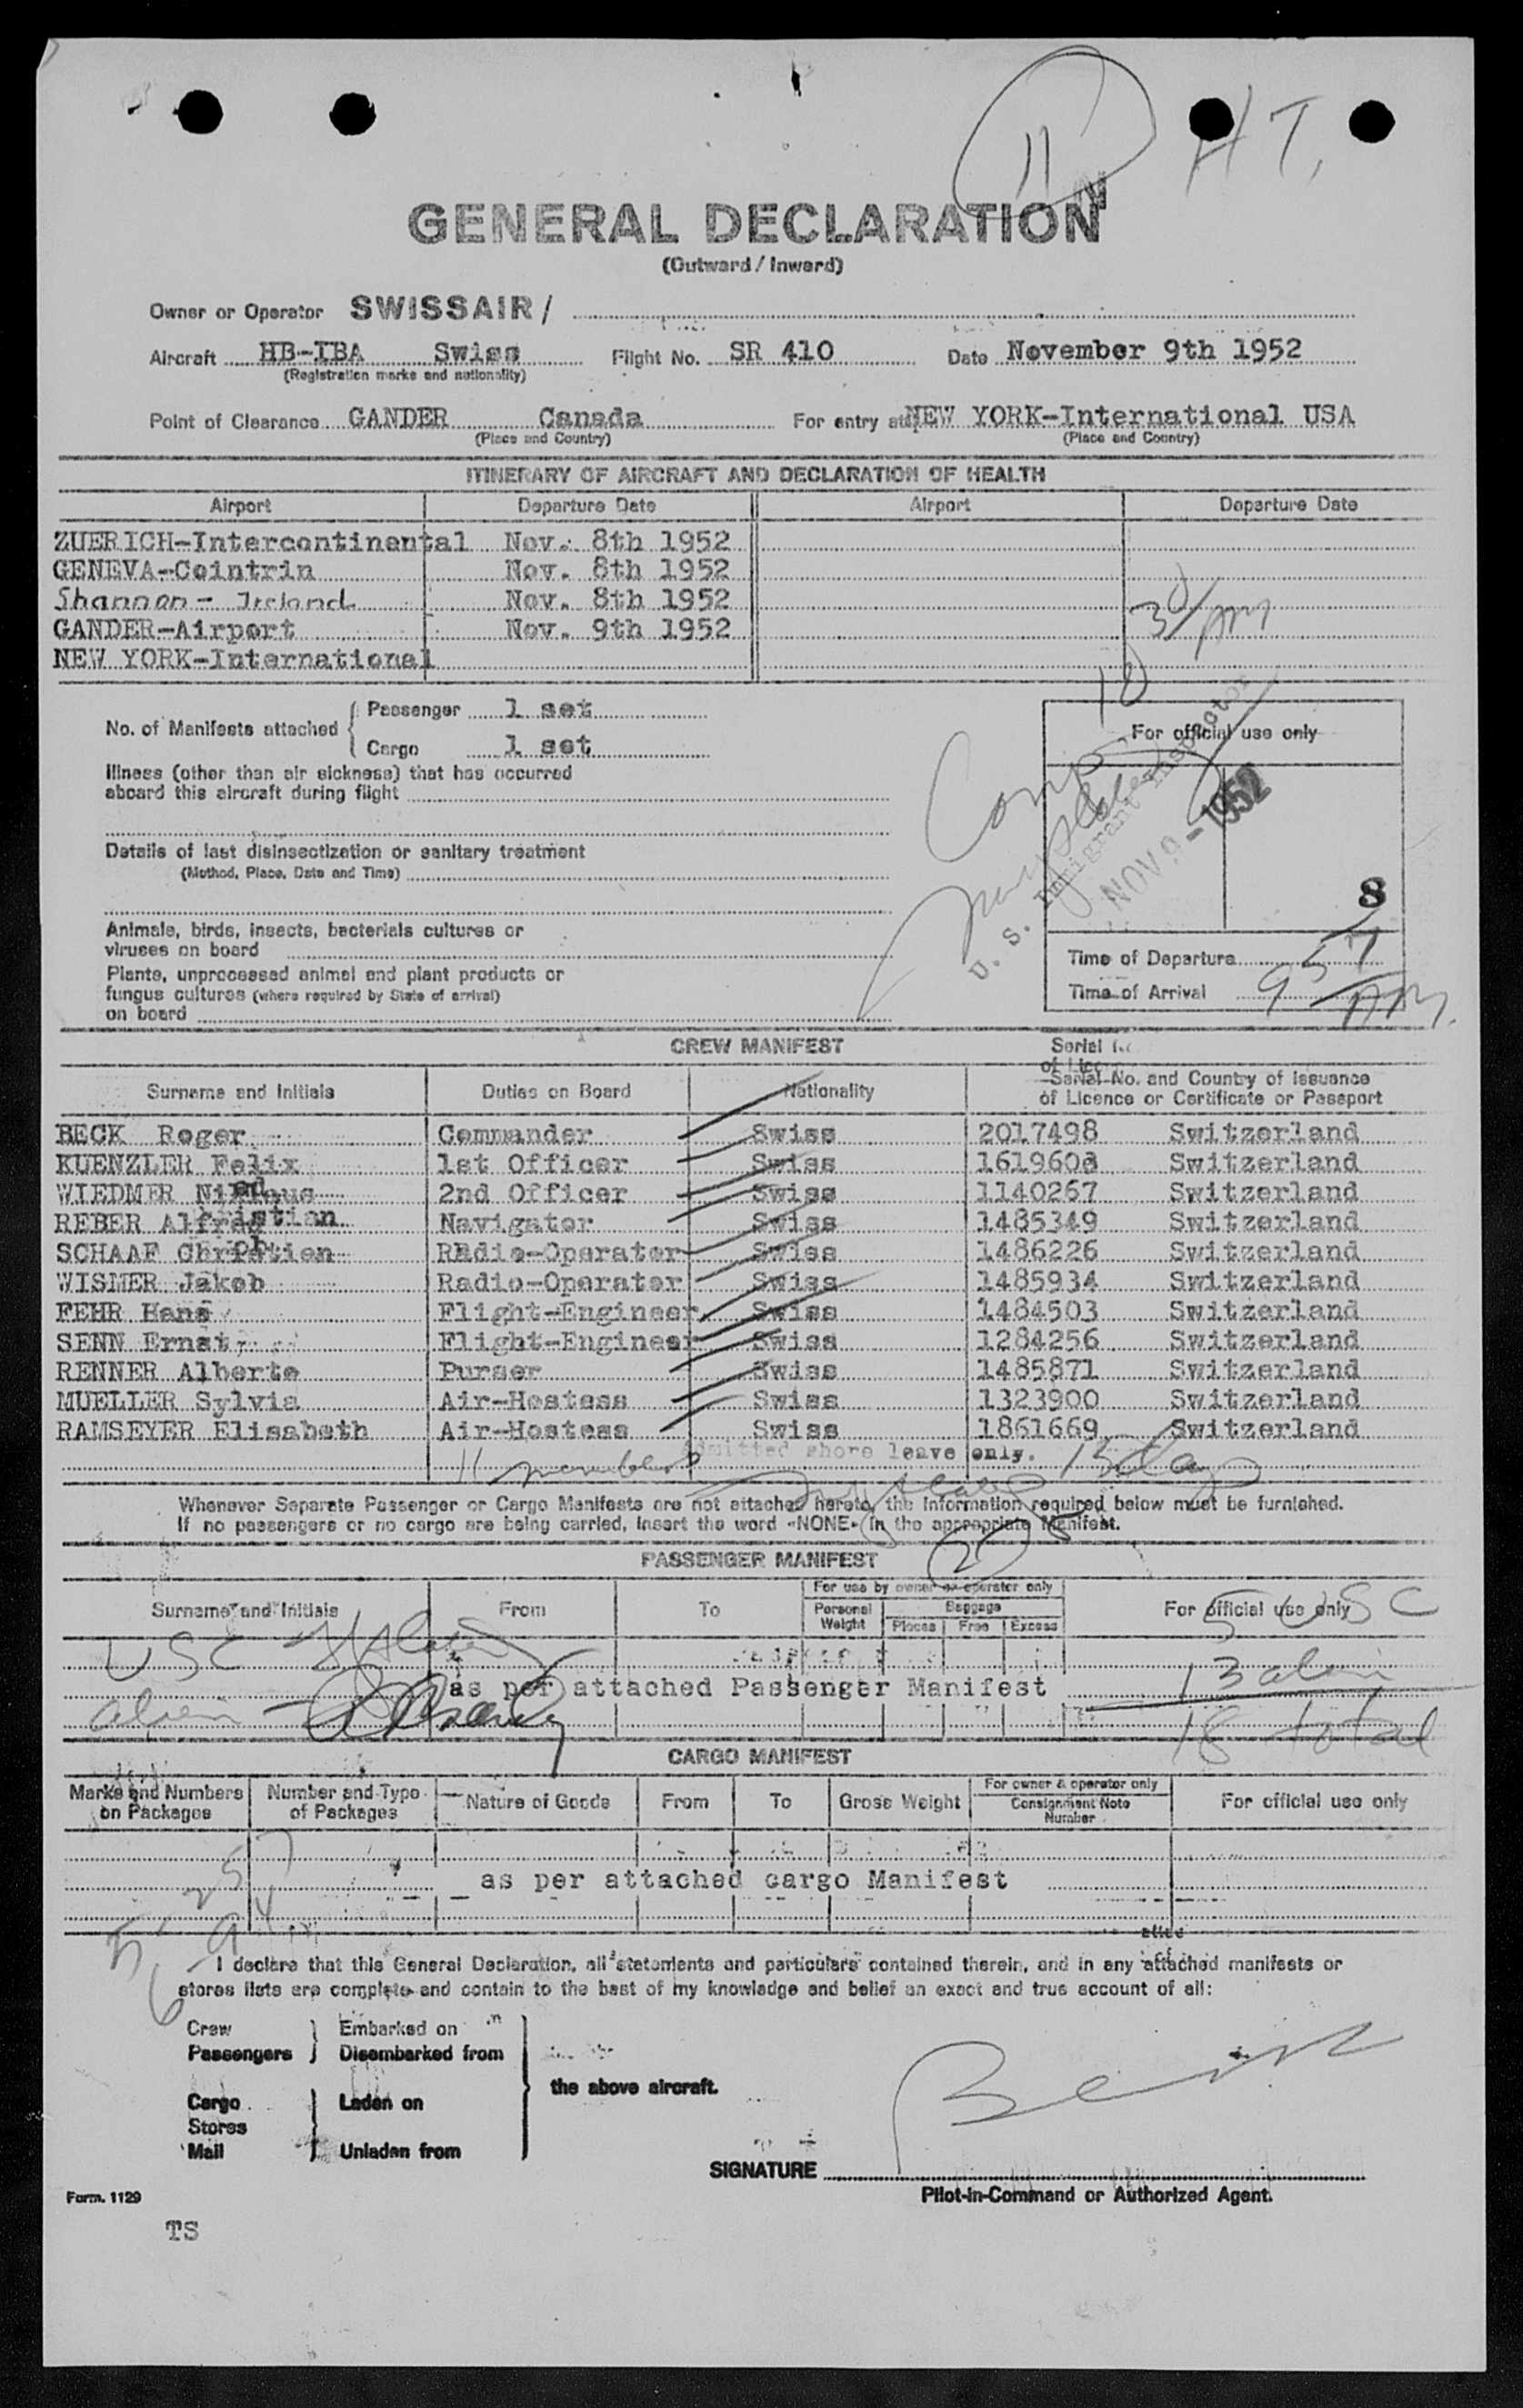 11 HT,
GENERAL DECLARATION
(Outward / Inward)
Owner or Operator SWISSAIR /
Aircraft HB-IBA Swiss Flight No. SR 410 Date November 9th 1952
(Registration marks and nationality)
Point of Clearance GANDER Canada For entry at NEW YORK-International USA
(Place and Country) (Place and Country)
ITINERARY OF AIRCRAFT AND DECLARATION OF HEALTH
Airport Departure Date Airport Departure Date
ZUERICH-Intercontinental Nov. 8th 1952
GENEVA-Cointrin Nov. 8th 1952
Shannon - Ireland Nov. 8th 1952
GANDER-Airport Nov. 9th 1952
NEW YORK-International
No. of Manifests attached { Passenger 1 set
Cargo 1 set
For official use only
Illness (other than air sickness) that has occurred
aboard this aircraft during flight
Details of last disinsectization or sanitary treatment
(Method, Place, Date and Time)
U. S. Immigrant Inspector
NOV 9 - 1952
8
Animals, birds, insects, bacterials cultures or
viruses on board
Plants, unprocessed animal and plant products or
fungus cultures (where required by State of arrival)
on board
Time of Departure
Time of Arrival 9 57 AM.
CREW MANIFEST
Surname and Initials Duties on Board Nationality Serial No. and Country of issuance
of Licence or Certificate or Passport
BECK Roger Commander Swiss 2017498 Switzerland
KUENZLER Felix 1st Officer Swiss 1619608 Switzerland
WIEDMER 2nd Officer Swiss 1140267 Switzerland
REBER Alfred Navigator Swiss 1485349 Switzerland
SCHAAF Christian Radio-Operator Swiss 1486226 Switzerland
WISMER Jakob Radio-Operator Swiss 1485934 Switzerland
FEHR Hans Flight-Engineer Swiss 1484503 Switzerland
SENN Ernst Flight-Engineer Swiss 1284256 Switzerland
RENNER Alberte Purser Swiss 1485871 Switzerland
MUELLER Sylvia Air-Hostess Swiss 1323900 Switzerland
RAMSEYER Elisabeth Air-Hostess Swiss 1861669 Switzerland
Admitted shore leave only.
11 members
Whenever Separate Passenger or Cargo Manifests are not attached hereto, the information required below must be furnished.
If no passengers or no cargo are being carried, insert the word «NONE» in the appropriate Manifest.
PASSENGER MANIFEST
Surname and Initials From To For use by owner or operator only For official use only
Personal Weight Baggage
Pieces Free Excess
5 USC
USC
13 alien
as per attached Passenger Manifest
alien
18 total
CARGO MANIFEST
Marks and Numbers on Packages Number and Type of Packages Nature of Goods From To Gross Weight For owner & operator only For official use only
Consignment Note Number
as per attached cargo Manifest
I declare that this General Declaration, all statements and particulars contained therein, and in any attached manifests or
stores lists are complete and contain to the best of my knowledge and belief an exact and true account of all:
Crew Embarked on
Passengers Disembarked from
the above aircraft.
Cargo Laden on
Stores
Mail Unladen from
SIGNATURE
Pilot-in-Command or Authorized Agent.
Form. 1129
TS